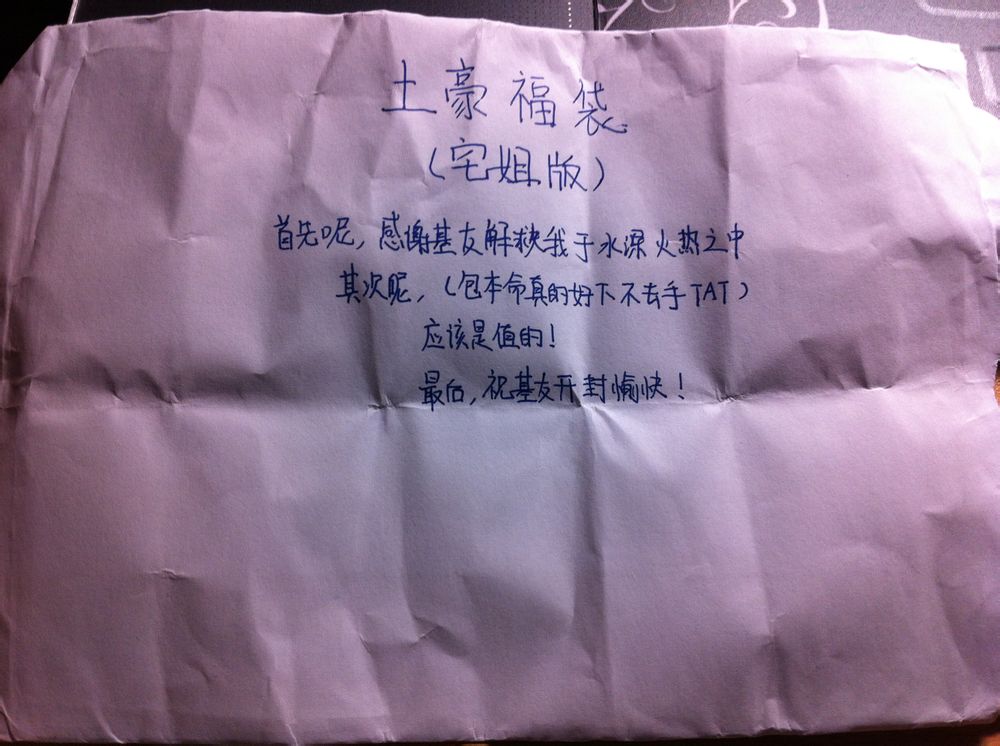 土豪福袋
(宅姐版)
首先呢,感谢基友解救我于水深火热之中
其次呢,(包本命真的好下不去手TAT)
应该是值的!
最后,祝基友开封愉快!